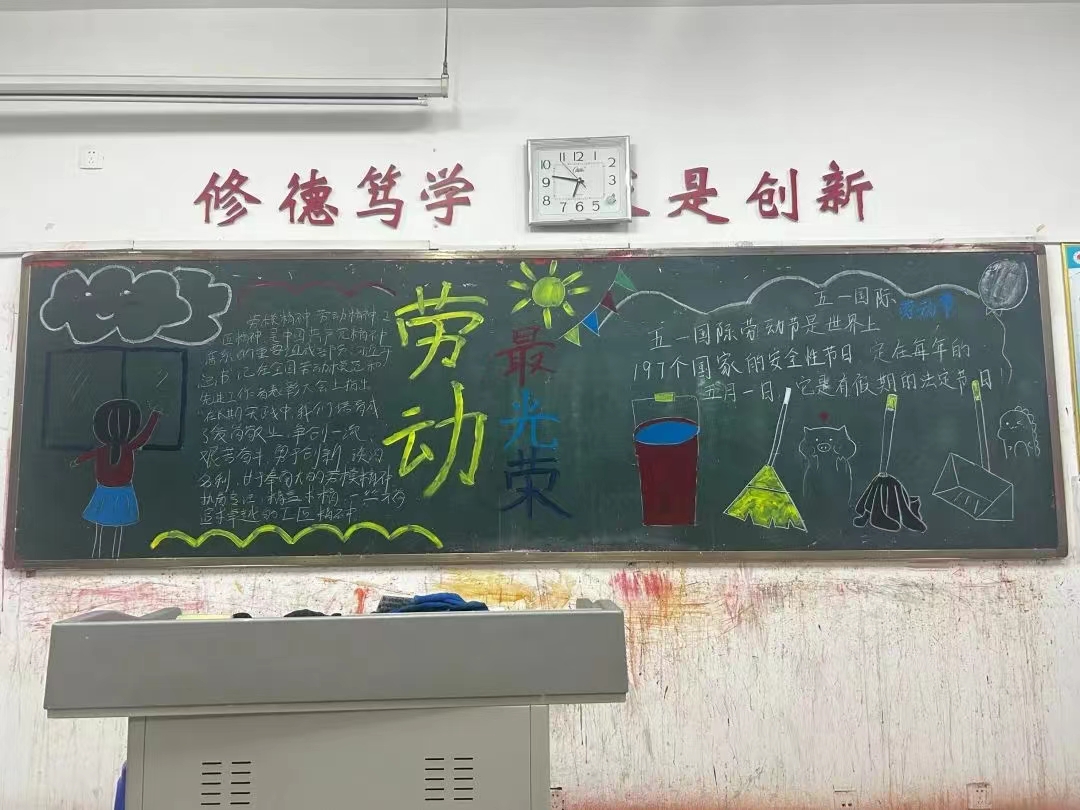 修德篤学 是创新
10 11 12 1 2
9 3
8 7 6 5
劳动
最光荣
劳模精神 劳动精神 工
匠精神 是中国共产党精神
谱系的重要组成部分 习近平
总书记在全国劳动模范和
先进工作者表彰大会上指出
在长期实践中 我们培育形成
了爱岗敬业、争创一流、
艰苦奋斗、勇于创新、淡泊
名利、甘于奉献的劳模精神
执着专注、精益求精、一丝不苟
追求卓越的工匠精神
五一国际劳动节
五一国际劳动节是世界上
197个国家的安全性节日 定在每年的
五月一日,它是有假期的法定节日!